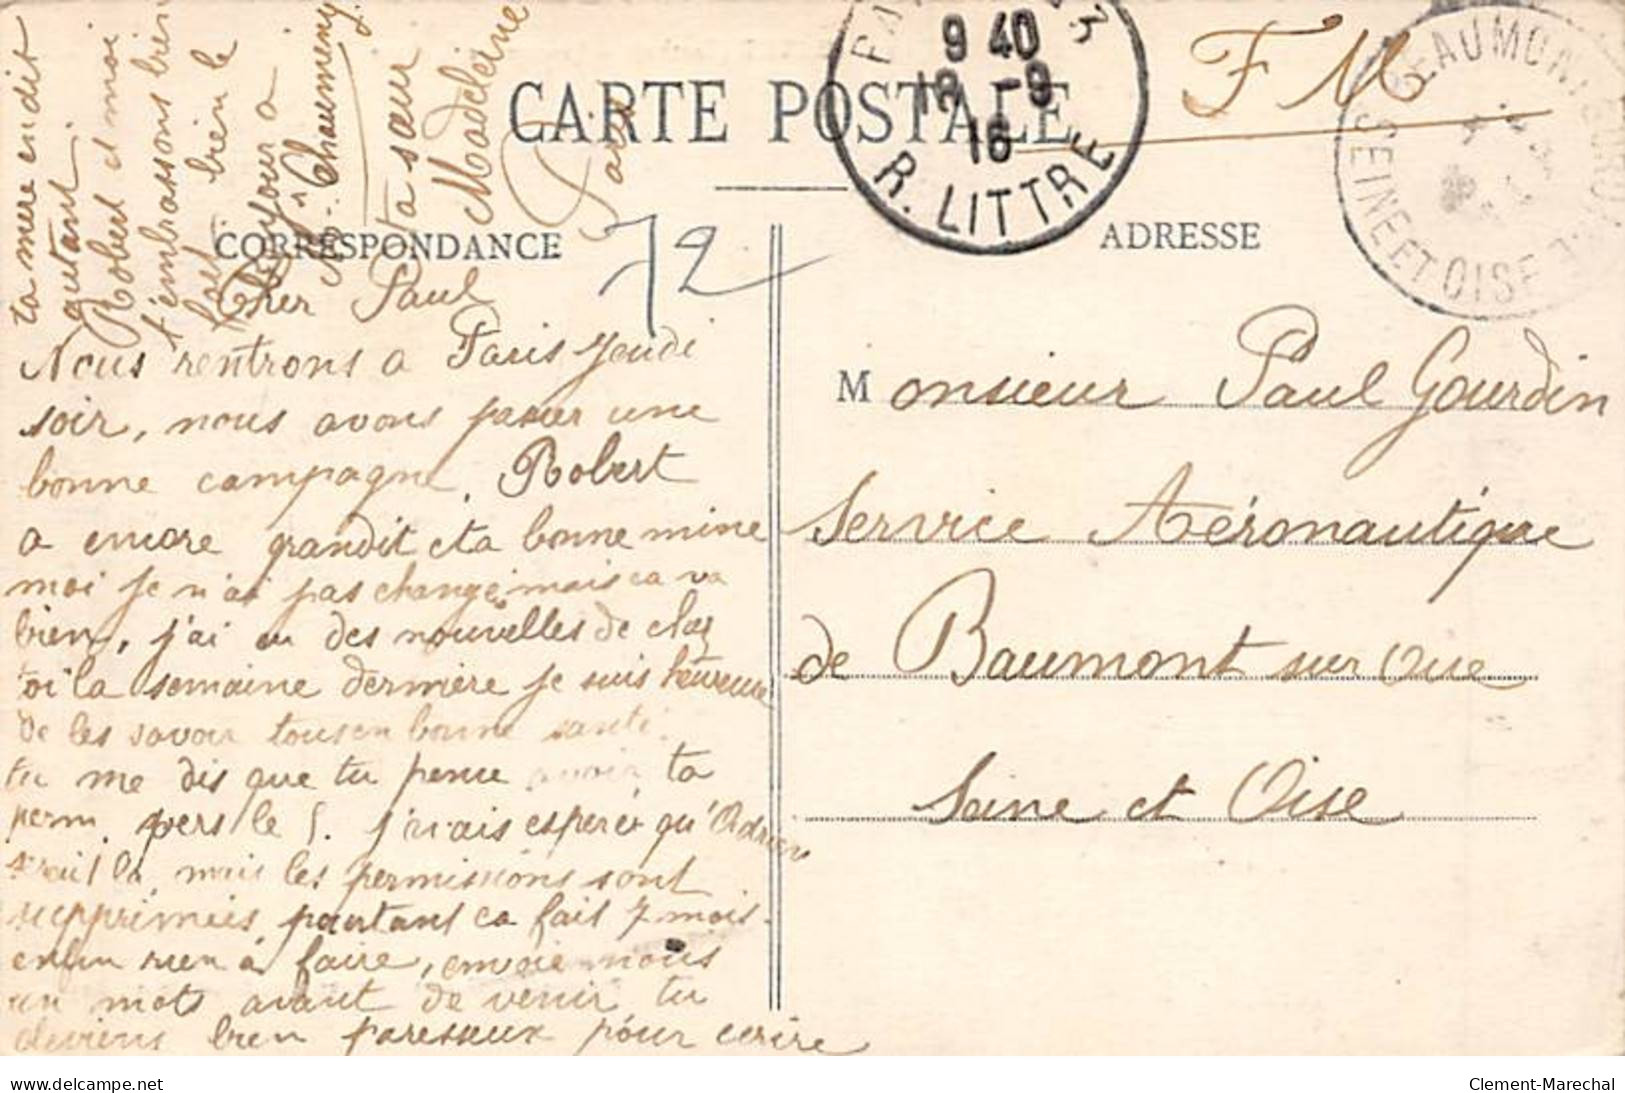 CARTE POSTALE
CORRESPONDANCE
ADRESSE
9 40
18 -9
16
R. LITTRE
F M
BEAUMONT SUR OISE
SEINE ET OISE
72
Paris
Cher Paul
Nous rentrons a Paris Jeudi
soir, nous avons passer une
bonne campagne. Robert
a encore grandit et a bonne mine
moi je n'ai pas changé mais ca va
bien, j'ai eu des nouvelles de chez
toi la semaine dernière je suis heureuse
de les savoir tous en bonne santé.
tu me dis que tu pense avoir ta
perm. vers le 5. j'avais esperé qu'Adrien
serait la, mais les permissions sont
supprimées, pourtant ca fait 7 mois.
enfin rien à faire, envoie nous
un mots avant de venir tu
deviens bien paresseux pour ecrire
ta mere en dit
autant
Robert et moi
t'embrassons bien
fait bien le
Bonjour a
Mr Chaumeny
ta sœur
Madeleine
Monsieur Paul Gourdin
Service Aéronautique
de Baumont sur Oise
Seine et Oise
delcampe.net
Clement-Marechal